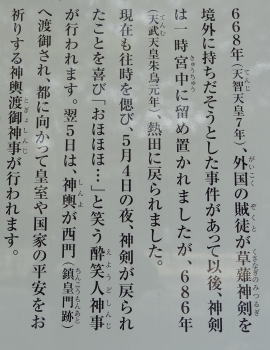 668年(天智天皇7年)、外国の賊徒が草薙神剣を
境外に持ちだそうとした事件があって以後、神剣
は一時宮中に留め置かれましたが、686年
(天武天皇朱鳥元年)、熱田に戻られました。
現在も往時を偲び、5月4日の夜、神剣が戻られ
たことを喜び「おほほほ…」と笑う酔笑人神事
が行われます。翌5日は、神輿が西門(鎮皇門跡)
へ渡御され、都に向かって皇室や国家の平安をお
祈りする神輿渡御神事が行われます。